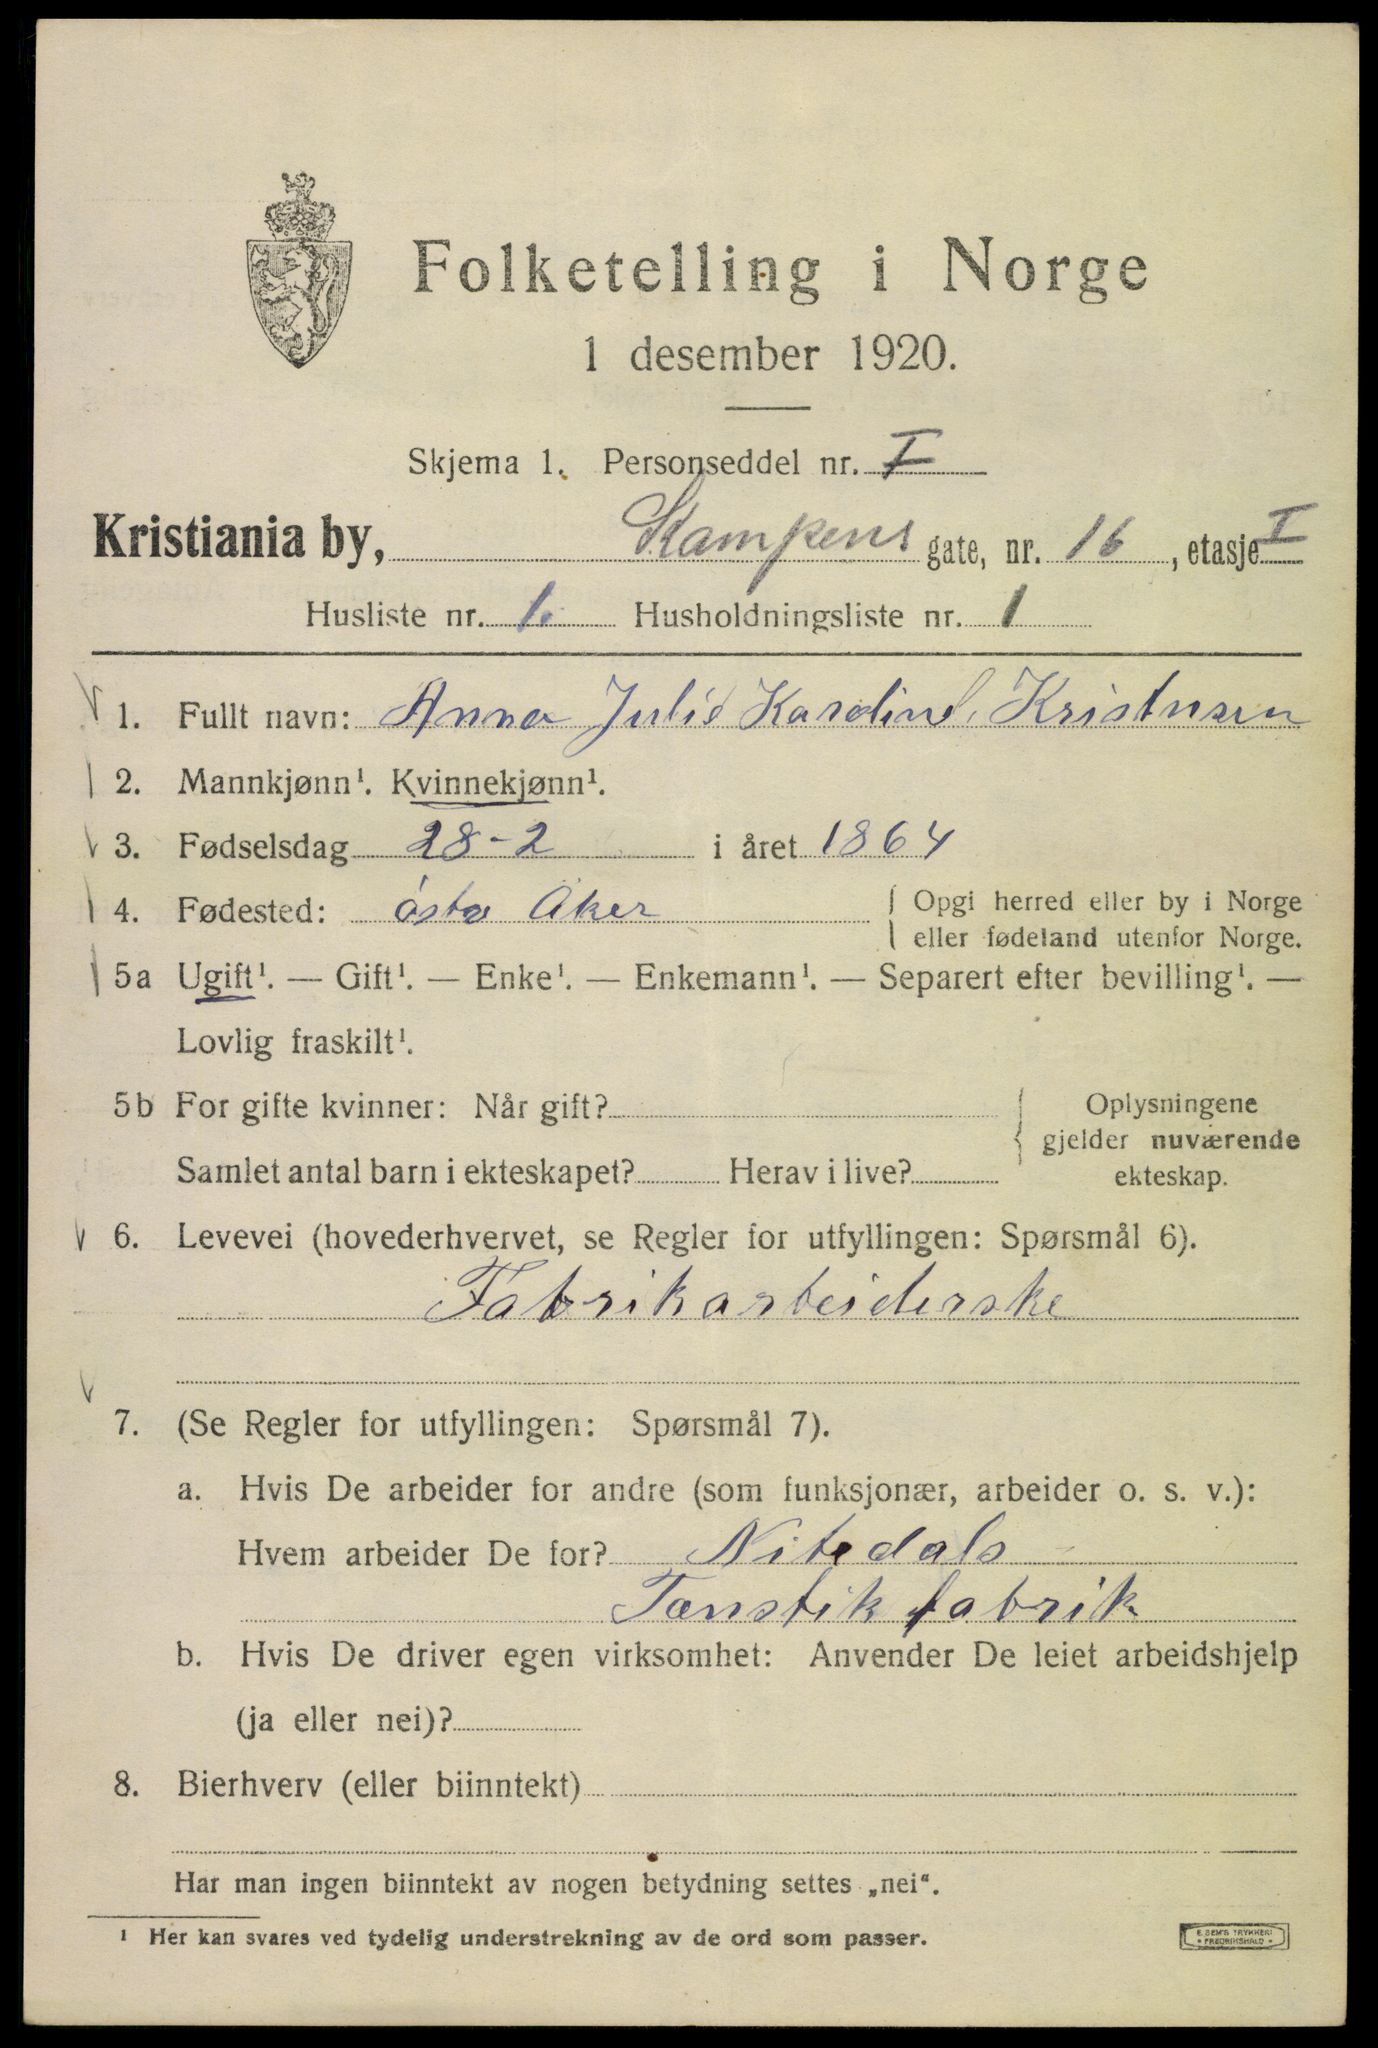 Folketelling i Norge
1 desember 1920.
Skjema 1. Personseddel nr. I
Kristiania by, Kampens gate, nr. 16, etasje I
Husliste nr. 1. Husholdningsliste nr. 1
1. Fullt navn: Anna Julie Karoline Kristnsen
2. Mannkjønn¹. Kvinnekjønn¹.
3. Fødselsdag 28-2 i året 1864
4. Fødested: østre Aker { Opgi herred eller by i Norge
eller fødeland utenfor Norge.
5a Ugift¹. — Gift¹. — Enke¹. — Enkemann¹. — Separert efter bevilling¹. —
Lovlig fraskilt¹.
5b For gifte kvinner: Når gift? { Oplysningene
gjelder nuværende
Samlet antal barn i ekteskapet? Herav i live? ekteskap.
6. Levevei (hovederhvervet, se Regler for utfyllingen: Spørsmål 6).
Fabrikarbeiderske
7. (Se Regler for utfyllingen: Spørsmål 7).
a. Hvis De arbeider for andre (som funksjonær, arbeider o. s. v.):
Hvem arbeider De for? Nitedals
Tænstik fabrik
b. Hvis De driver egen virksomhet: Anvender De leiet arbeidshjelp
(ja eller nei)?
8. Bierhverv (eller biinntekt)
Har man ingen biinntekt av nogen betydning settes „nei“.
¹ Her kan svares ved tydelig understrekning av de ord som passer.
E. SEM'S TRYKKERI
FREDRIKSHALD